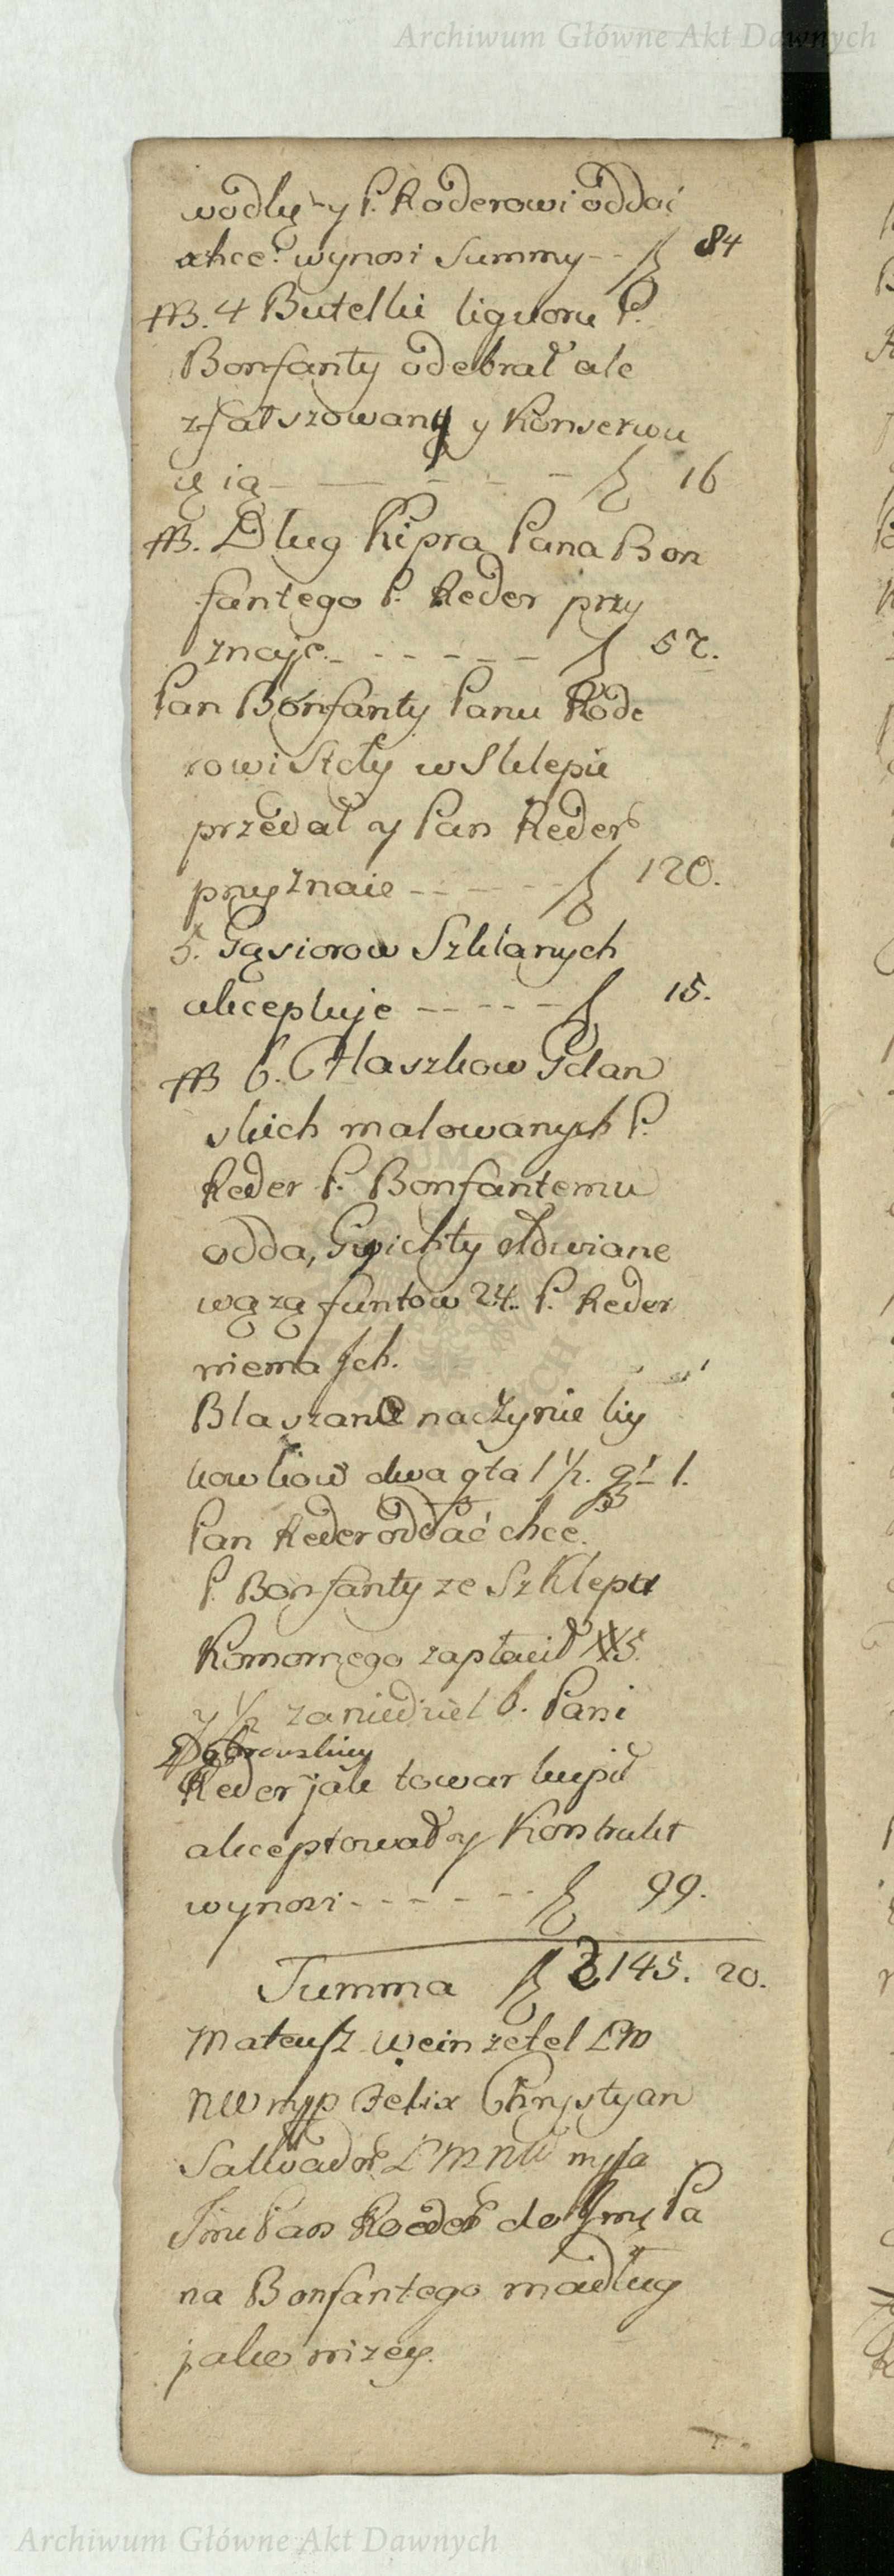 Archiwum Główne Akt Dawnych
wodlę y P. Roderowi oddać
chce. wynosi Summy -- f 84
NB. 4 Butelki liquoru P.
Bonfanty odebrał ale
zfałszowany y Konserwu
ię ią - - - f 16
NB. Dług Kipra Pana Bon
fantego P. Reder przy
znaje - - - - - f 57.
Pan Bonfanty Panu Rode
rowi Stoły w Sklepie
przedał y Pan Reder
przyznaie - - - - f 120.
5. Gąsiorow Szklanych
akceptuje - - - - - f 15.
NB 6. Flaszkow Gdan
skich malowanych P.
Reder P. Bonfantemu
odda, Gwichty ołowiane
wązą funtow 24. P. Reder
niema Jch.
Blaszane naczynie liy
kowkow dwa gta 1 1/2. 1.
Pan Reder oddać chce.
P. Bonfanty ze Szklepu
Komornego zapłacił XX5
y 1/2 za niedziel 6. Pani
Dąbrowskiey
Reder jak towar kupił
akceptował y Kontrakt
wynosi - - - - - - f 99.
Summa f 2145. 20.
Mateusz Weinzetel LM
NW mpp Felix Chrystyan
Salwador LMNW mpp
Jmć Pan Roeder do Jmć Pa
na Bonfantego ma dług
jako nizey.
Archiwum Główne Akt Dawnych